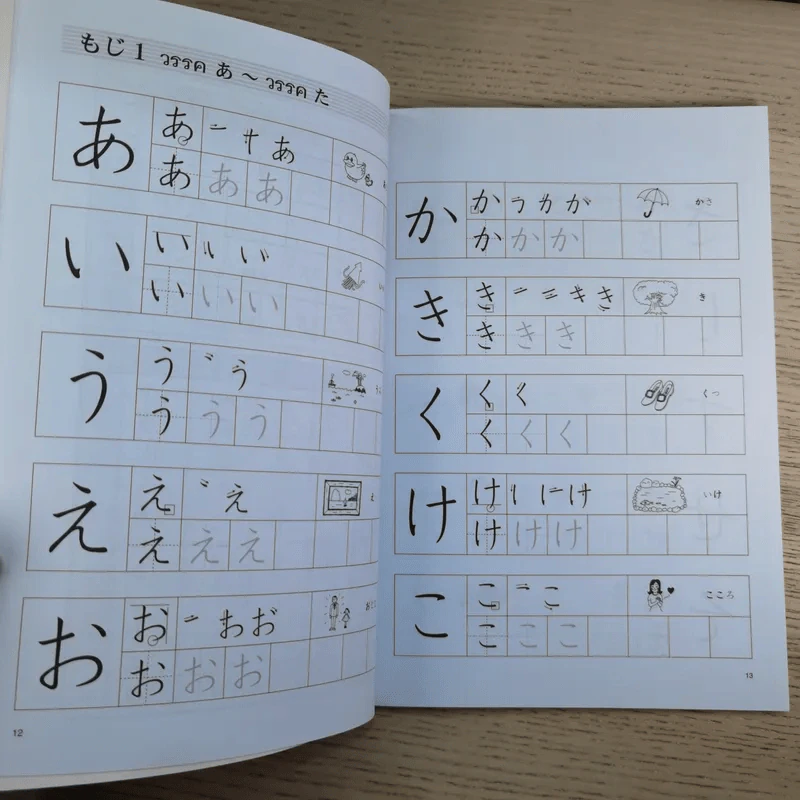 もじ 1 วรรค あ ～ วรรค た
あ あ あ
あ あ あ
い い い
い い い
う う う
う う う
え え え え
え え え
お お お お お
お お お
12
か か か かさ
か か か
き き き き き
き き き
く く く くつ
く く く
け け け いけ
け け け
こ こ こ こころ
こ こ こ
13